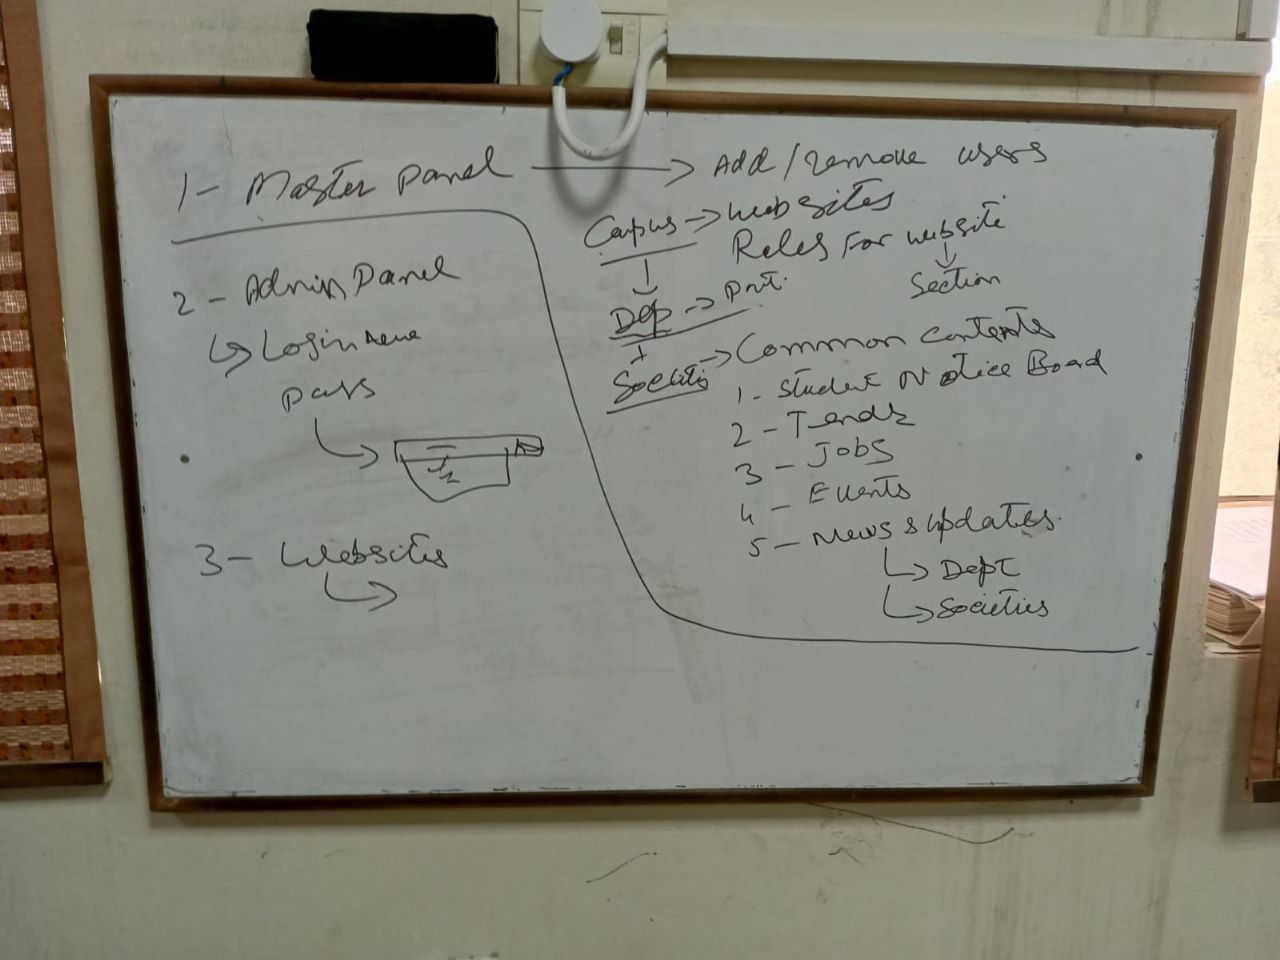 1- Master Panel → Add/remove users
Capus → Websites
Roles For website
↓
Section
↓
Dep → Pnt.
+
Socitis → Common Contents
1- Student Notice Board
2 - Tends
3 - Jobs
4 - Events
5 - News & updates.
↳ Dept
↳ Societies
2 - Admin Panel
↳ Login
pass
3 - Websites